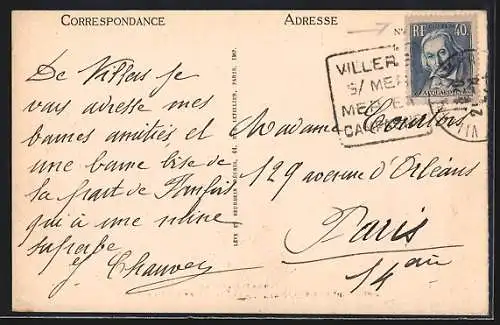 CORRESPONDANCE
ADRESSE
De Villers je
vous adresse mes
bonnes amitiés et
une bonne bise de
la part de
qui a une mine
superbe
Chauvey
RF 40c
JACQUARD
VILLER
S/ MER
MER E
CA
Madame Courtois
129 avenue d'Orléans
Paris
14 eme
LÉVY ET NEURDEIN RÉUNIS, 44, RUE LETELLIER, PARIS, IMP.